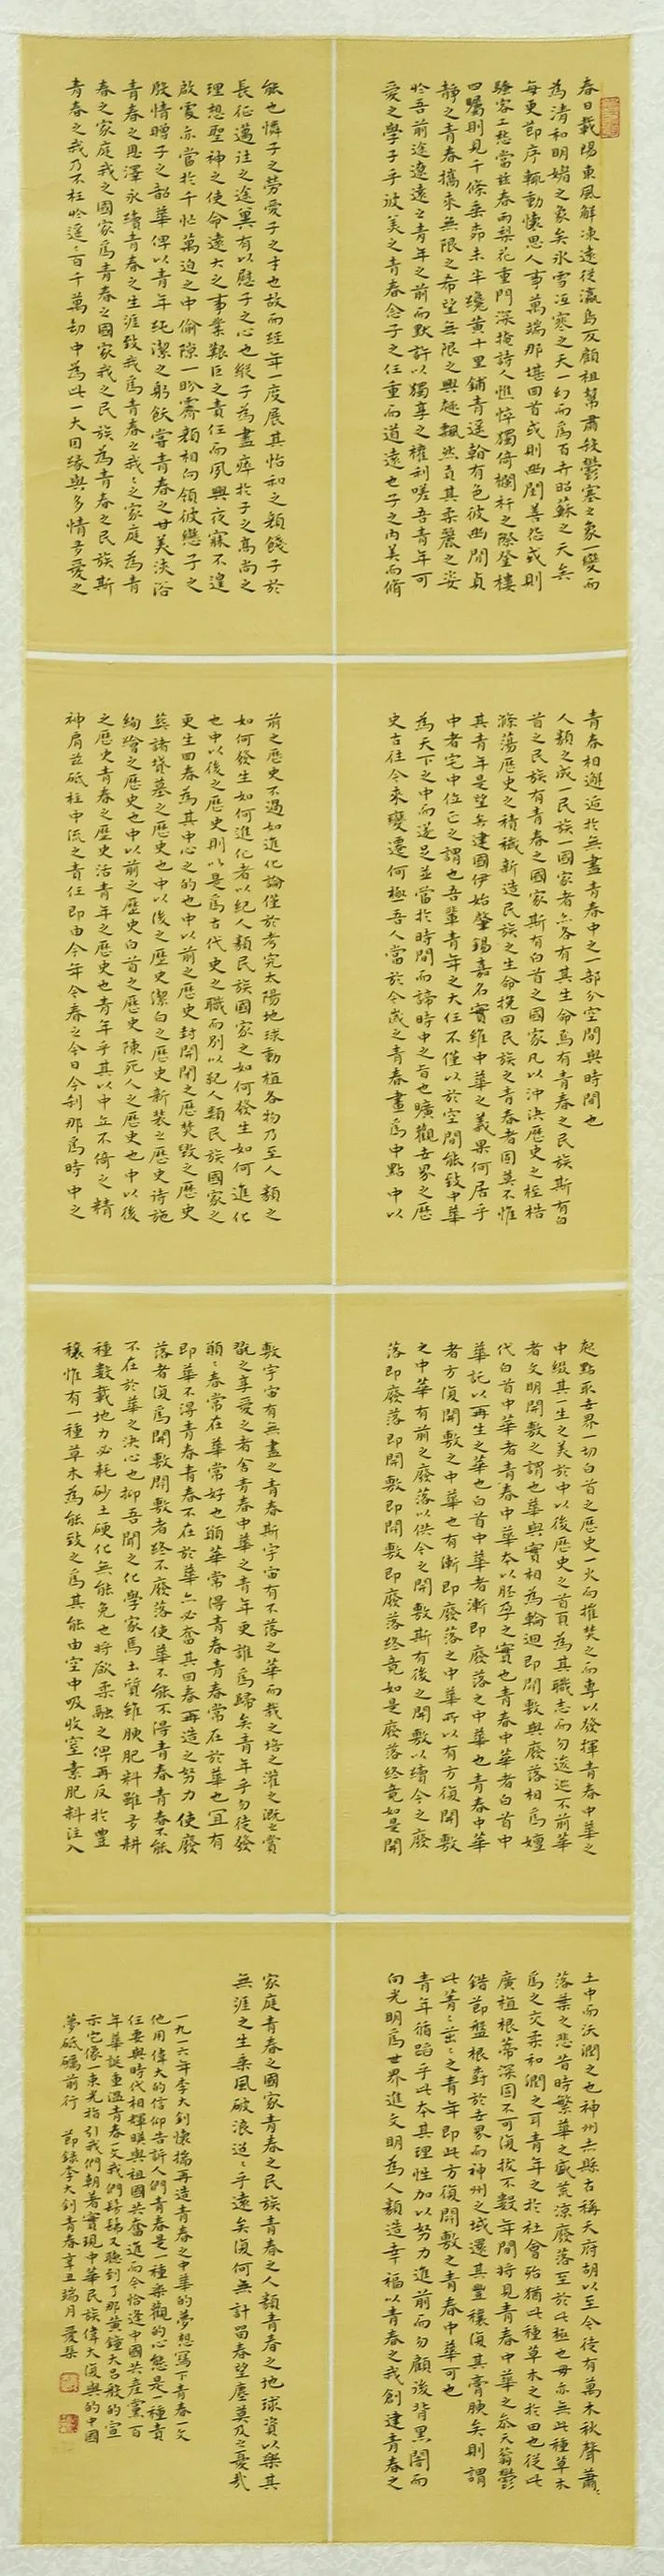 春日載陽東風解凍遠從瀛島反顧祖幫肅殺鬱塞之象一變而
為清和明媚之象矣冰雪沍寒之天一幻而為百卉昭蘇之天矣
每更節序輒動懷思人事萬端那堪回首或則幽閨善怨或則
騷客工愁當茲春雨梨花重門深掩詩人憔悴獨倚欄杆之際登樓
四矚則見千條垂茆未半纔黃十里鋪青遥翰有色彼幽閒貞
靜之青春攜來無限之希望無限之興趣飄然貢其柔麗之姿
於吾前途遼遠之青年之前而默許以獨享之權利嗟吾青年可
愛之學子乎彼美之青春念子之任重而道遠也子之內美而脩
能也憐子之勞愛子之才也故而經年一度展其怡和之顏餞子於
長征邁往之途冀有以慰子之心也縱子為盡瘁於子之高尚之
理想聖神之使命遠大之事業艱巨之責任而夙興夜寐不遑
啟處亦當於千忙萬迫之中偷隙一盼霽顏相向領彼戀子之
殷情贈子之韶華俾以青年純潔之躬飫嘗青春之甘美浹浴
青春之恩澤永續青春之生涯致我為青春之我我之家庭為青
春之家庭我之國家為青春之國家我之民族為青春之民族斯
青春之我乃不枉於遥遥百千萬劫中為此一大因緣與多情多愛之
青春相邂逅於無盡青春中之一部分空間與時間也
人類之成一民族一國家者亦各有其生命焉有青春之民族斯有白
首之民族有青春之國家斯有白首之國家凡以沖決歷史之桎梏
滌蕩歷史之積穢新造民族之生命挽回民族之青春者固莫不惟
其青年是望矣建國伊始肇錫嘉名實維中華之義果何居乎
中者宅中位正之謂也吾輩青年之大任不僅以於空間能致中華
為天下之中而遂足並當於時間而諦時中之旨也曠觀世界之歷
史古往今來變遷何極吾人當於今歲之青春畫為中點中以
前之歷史不過如進化論僅於考究太陽地球動植各物乃至人類之
如何發生如何進化者以紀人類民族國家之如何發生如何進化
也中以後之歷史則以是為古代史之職而別以紀人類民族國家之
更生回春為其中心之的也中以前之歷史封閉之歷史焚毀之歷史
葬諸墳墓之歷史也中以後之歷史潔白之歷史新裝之歷史待施
絢繪之歷史也中以前之歷史白首之歷史陳死人之歷史也中以後
之歷史青春之歷史活青年之歷史也青年乎其以中立不倚之精
神肩茲砥柱中流之責任即由今年今春之今日今剎那為時中之
起點取世界一切白首之歷史一火而摧焚之而專以發揮青春中華之
中綴其一生之美於中以後歷史之首頁為其職志而勿逡巡不前華
者文明開敷之謂也華與實相為輪迴即開敷與廢落相為嬗
代白首中華者青春中華本以胚孕之實也青春中華者白首中
華託以再生之華也白首中華者漸即廢落之中華也青春中華
者方復開敷之中華也有漸即廢落之中華所以有方復開敷
之中華有前之廢落以供今之開敷斯有後之開敷以續今之廢
落即廢落即開敷即開敷即廢落終竟如是廢落終竟如是開
敷宇宙有無盡之青春斯宇宙有不落之華而栽之培之灌之溉之賞
翫之享愛之者舍青春中華之青年更誰為歸矣青年乎勿徒發
願願春常在華常好也願華常得青春青春常在於華也宜有
即華不得青春青春不在於華亦必奮其回春再造之努力使廢
落者復為開敷開敷者終不廢落使華不能不得青春青春不能
不在於華之決心也抑吾聞之化學家焉土質雖腴肥料雖多耕
種數載地力必耗砂土硬化無能免也將欲柔融之俾再反於豐
穰惟有一種草木為能致之為其能由空中吸收窒素肥料注入
土中而沃潤之也神州赤縣古稱天府胡以至今徒有萬木秋聲蕭蕭
落葉之悲昔時繁華之盛荒涼廢落至於此極也毋亦無此種草木
為之交柔和潤之耳青年之於社會殆猶此種草木之於田也從此
廣植根蒂深固不可復拔不數年間將見青春中華之參天蓊鬱
錯節盤根樹於世界而神州之域還其豐穰復其膏腴矣則謂
此菁菁茁茁之青年即此方復開敷之青春中華可也
青年循蹈乎此本其理性加以努力進前而勿顧後背黑闇而
向光明為世界進文明為人類造幸福以青春之我創建青春之
家庭青春之國家青春之民族青春之人類青春之地球資以樂其
無涯之生乘風破浪迢迢乎遠矣復何無計留春望塵莫及之憂哉
一九一六年李大釗懷揣再造青春之中華的夢想寫下青春一文
他用偉大的信仰告訴人們青春是一種樂觀的心態是一種責
任要與時代相輝映與祖國共奮進而今恰逢中國共產黨百
年華誕重溫青春一文我們彷彿又聽到了那黃鐘大呂般的宣
示它像一束光指引我們朝著實現中華民族偉大復興的中國
夢砥礪前行 節錄李大釗青春辛丑瑞月